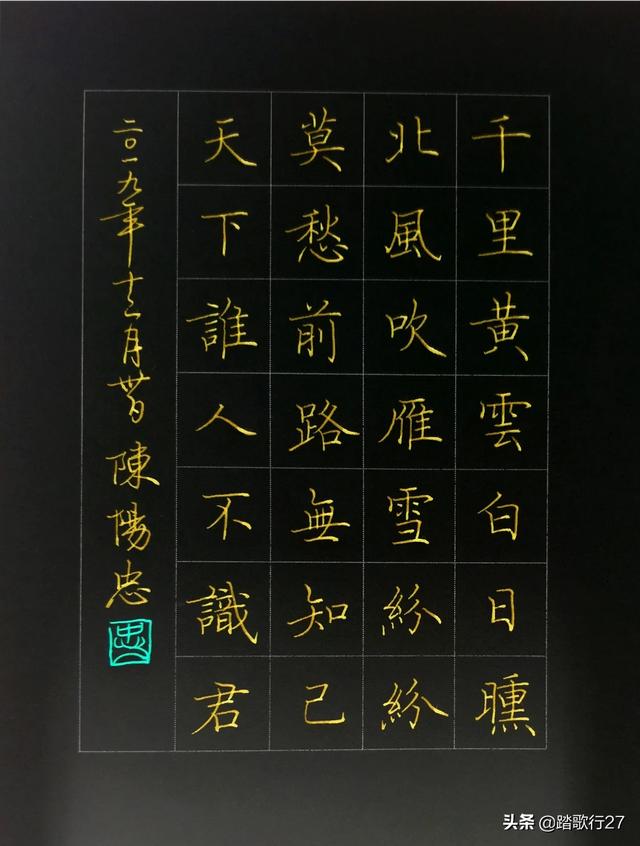 千里黃雲白日曛
北風吹雁雪紛紛
莫愁前路無知己
天下誰人不識君
二〇一九年十二月 陳陽忠
忠
头条 @踏歌行27